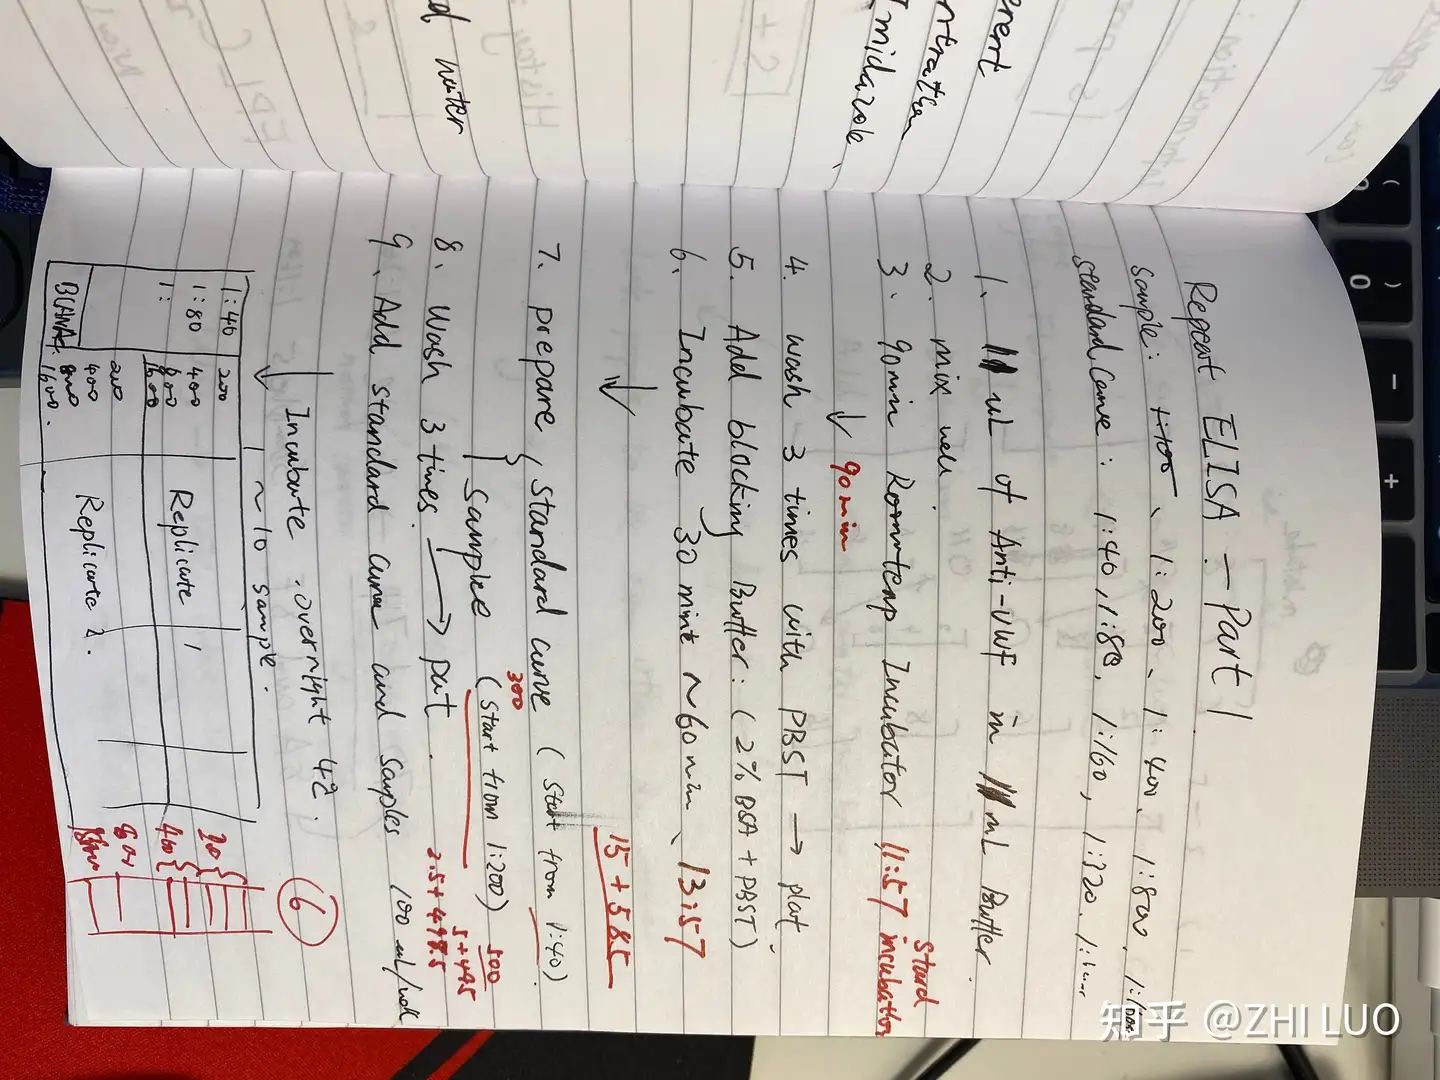 erent
ntration
Imidazole、
d water
Repeat ELISA — Part 1
Sample: 1:100、1:200、1:400、1:800、
Standard Curve: 1:40, 1:80, 1:160, 1:320、
1. uL of Anti-VWF in mL Buffer.
2. mix well
3. 90min Roomtemp Incubator 11:57 incubation
Start
↓ 90min
4. wash 3 times with PBST → plat
5. Add blocking Buffer: (2% BSA + PBST)
6. Incubate 30 min ~ 60min、13:57
↓
15 + 585
7. prepare { Standard curve (Start from 1:40)
300
Sample (Start from 1:200) 500
5+495
2.5+497.5
8. Wash 3 times. → pat.
9. Add standard curve and samples 100 ul/well
↓ Incubate . overnight 4℃.
6
1 ~ 10 sample.
1:40 200
1:80 400
1: 800
1600
Replicate 1
200
400
800
BLANK 1600.
Replicate 2.
20
400
800
知乎 @ZHI LUO